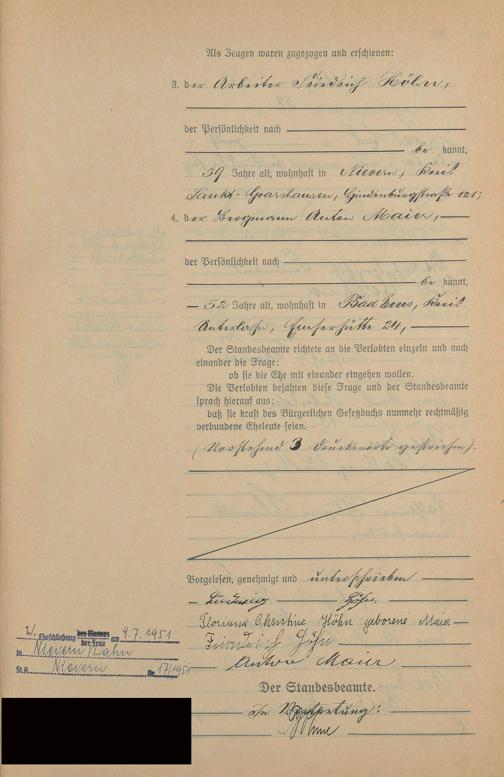 Als Zeugen waren zugezogen und erschienen:
3. der Arbeiter Friedrich Höhn,
der Persönlichkeit nach
be kannt,
59 Jahre alt, wohnhaft in Nievern, Kreis
Sankt-Goarshausen, Hindenburgstraße 121;
4. der Bergmann Anton Maier,
der Persönlichkeit nach
be kannt,
52 Jahre alt, wohnhaft in Bad Ems, Kreis
Unterlahn, Emserhütte 24,
Der Standesbeamte richtete an die Verlobten einzeln und nach
einander die Frage:
ob sie die Ehe mit einander eingehen wollen.
Die Verlobten bejahten diese Frage und der Standesbeamte
sprach hierauf aus:
daß sie kraft des Bürgerlichen Gesetzbuchs nunmehr rechtmäßig
verbundene Eheleute seien.
(Vorstehend 3 Druckworte gestrichen).
Vorgelesen, genehmigt und unterschrieben
Ludwig Höhn.
Christine Höhn geborene Maier
Friedrich Höhn
Anton Maier
Der Standesbeamte.
In Vertretung:
2. Eheschließung des Mannes der Frau am 9.7.1951
in Nievern/Lahn
St.A. Nievern Nr. 17/1951